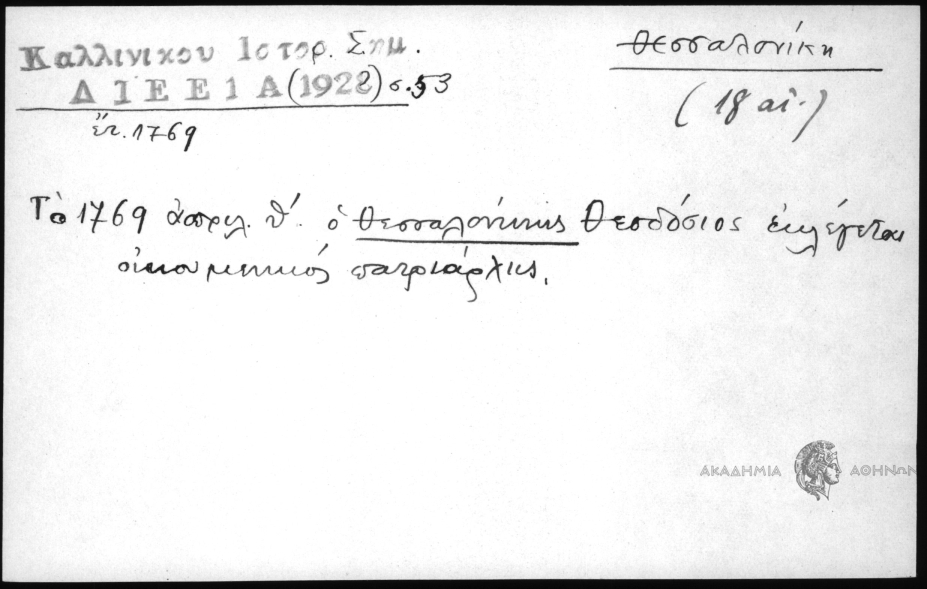 Καλλινικου Ιστορ. Σημ.
ΔΙΕΕ 1 Α (1928) σ. 53
ἔτ. 1769
Θεσσαλονίκη
(18 αἰ.)
Τὸ 1769 ἀπριλ. θ΄. ὁ Θεσσαλονίκης Θεοδόσιος ἐκλέγεται
οἰκουμενικός πατριάρχης.
ΑΚΑΔΗΜΙΑ ΑΘΗΝΩΝ